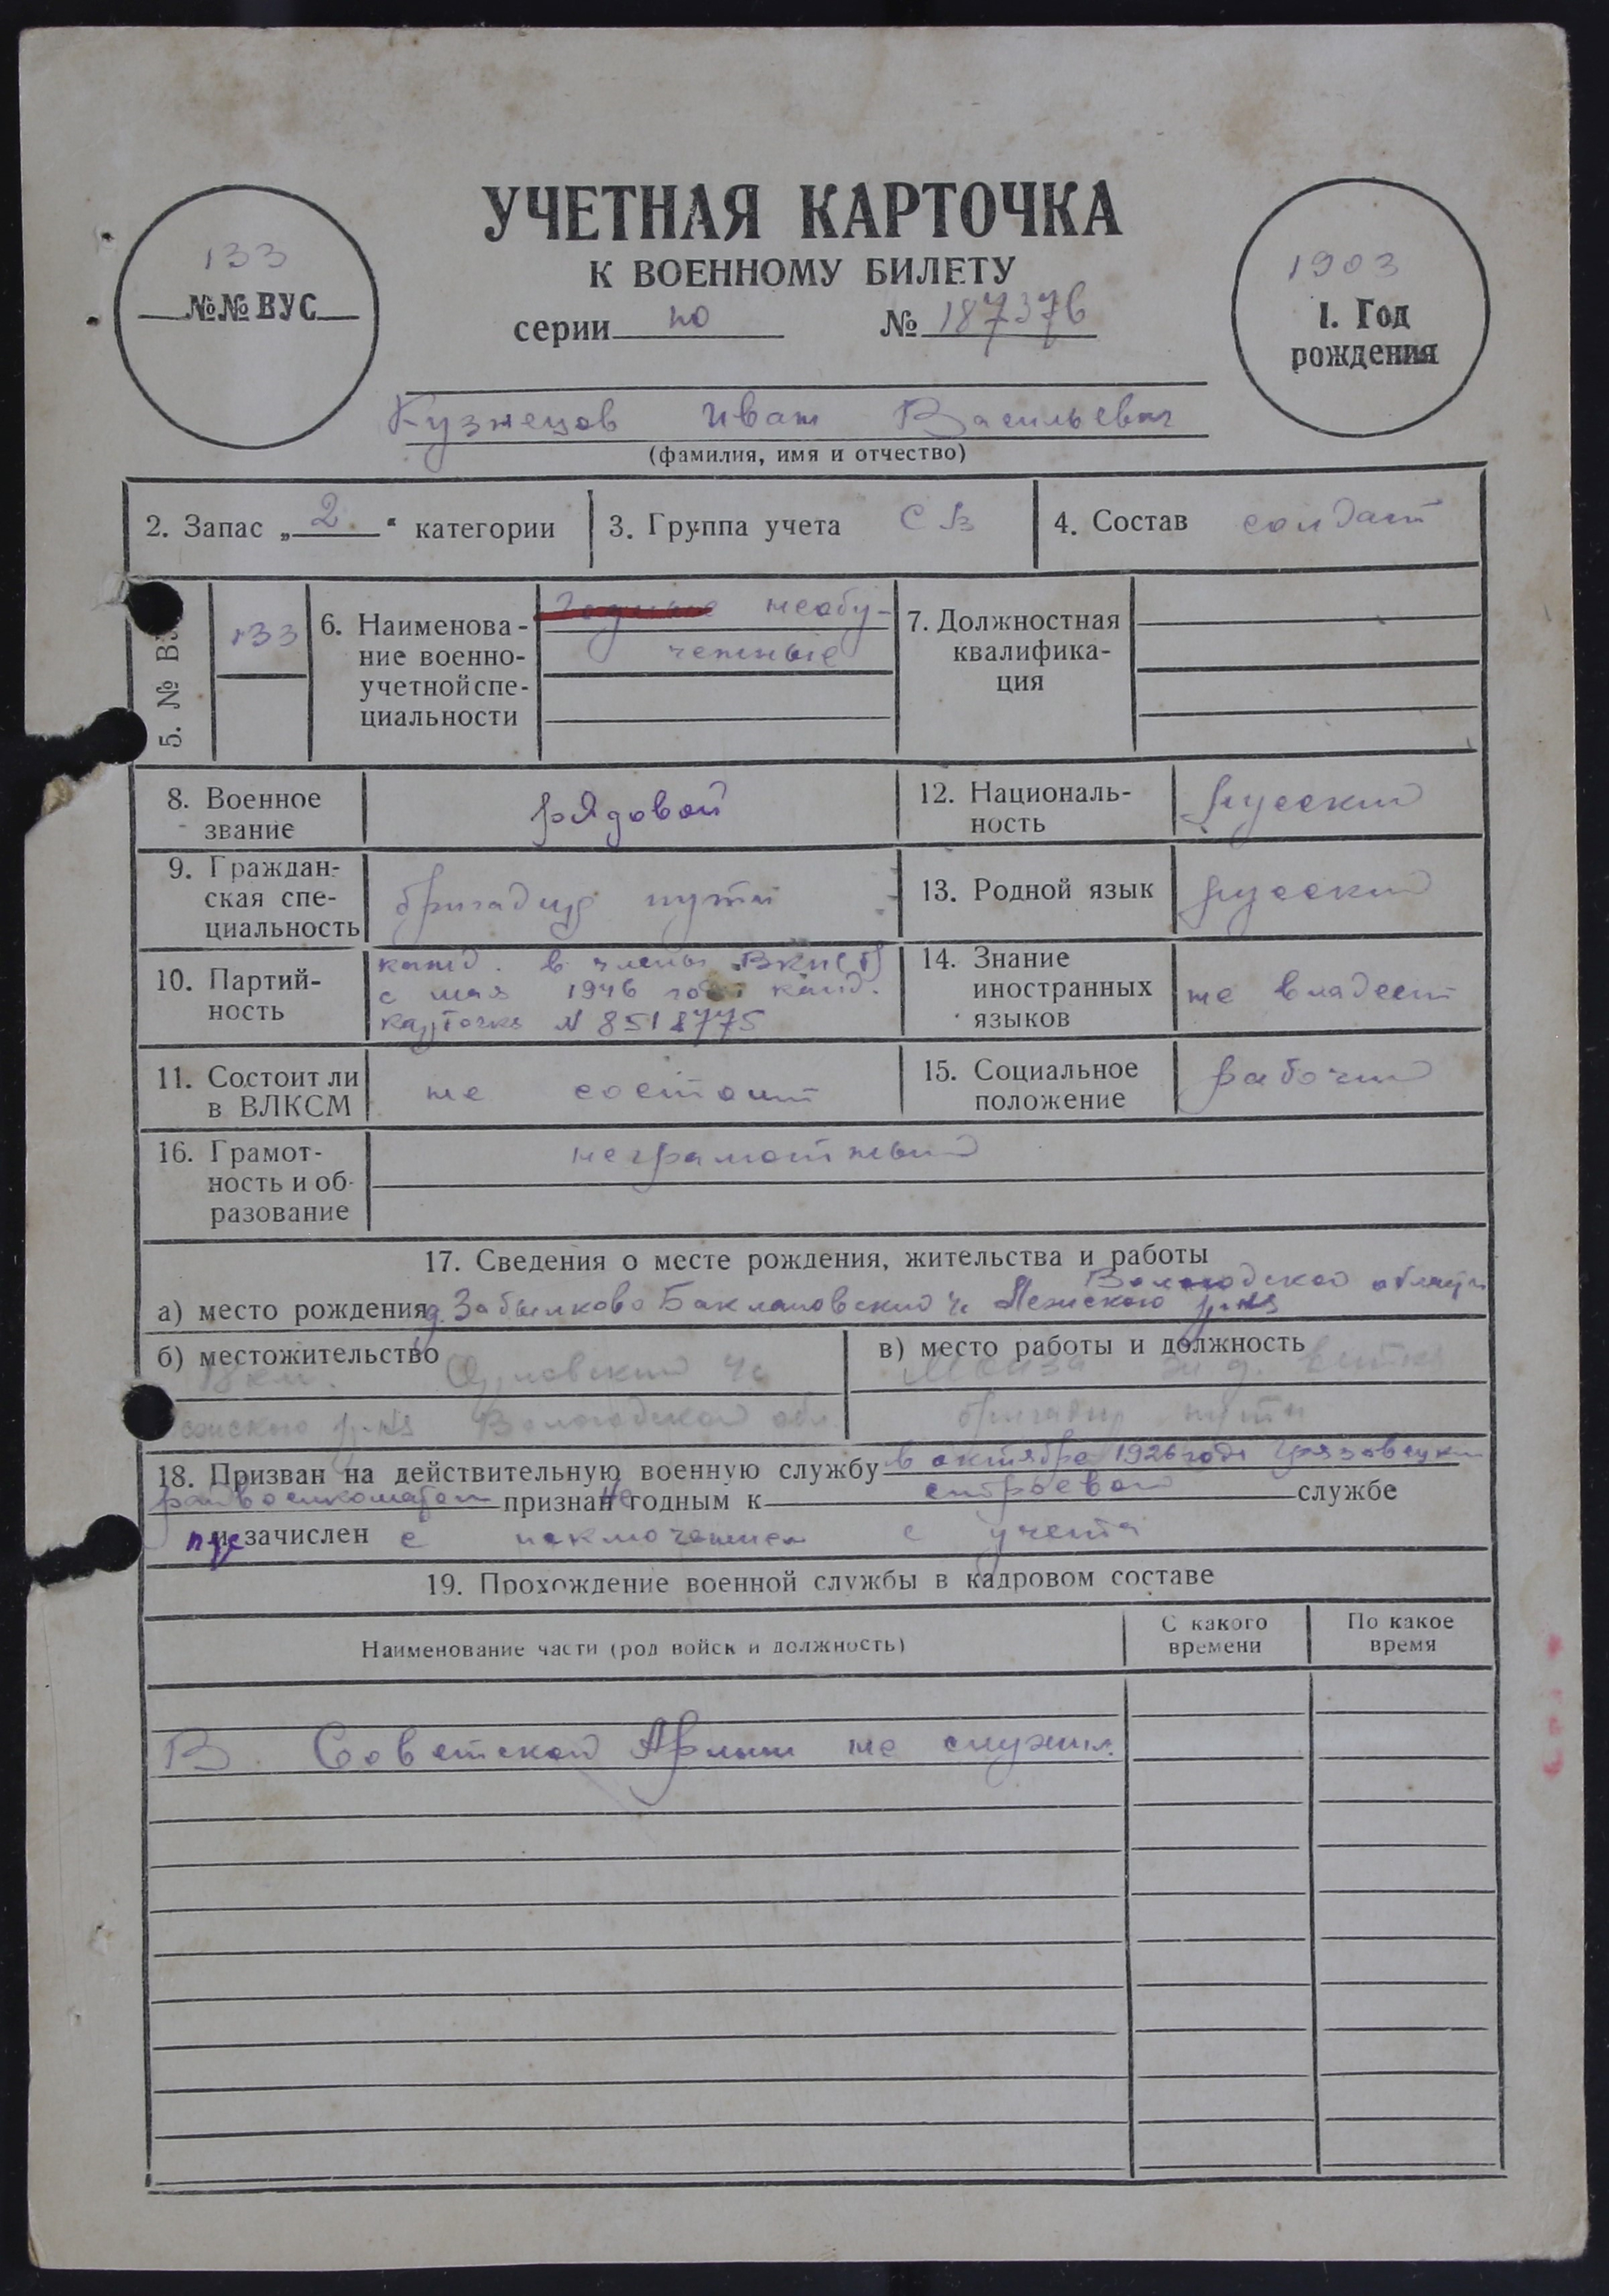 УЧЕТНАЯ КАРТОЧКА
К ВОЕННОМУ БИЛЕТУ
133
№№ ВУС
серии но № 187376
1903
1. Год
рождения
Кузнецов Иван Васильевич
(фамилия, имя и отчество)
2. Запас „ 2 “ категории
3. Группа учета СВ
4. Состав солдат
5. № В
133
6. Наименова-
ние военно-
учетной спе-
циальности
необу-
ченные
7. Должностная
квалифика-
ция
8. Военное
звание
рядовой
12. Националь-
ность
русский
9. Граждан-
ская спе-
циальность
бригадир пути
13. Родной язык
русский
10. Партий-
ность
канд. в члены ВКП(б)
с мая 1946 года канд.
карточка N 8518775
14. Знание
иностранных
языков
не владеет
11. Состоит ли
в ВЛКСМ
не состоит
15. Социальное
положение
рабочий
16. Грамот-
ность и об-
разование
неграмотный
17. Сведения о месте рождения, жительства и работы
Вологодской области
а) место рождения д. Забылково Баклановский с Лежского р-на
б) местожительство
18 км. Орловский с
р-на Вологодской обл.
в) место работы и должность
ж.д. ветка
бригадир пути
18. Призван на действительную военную службу в октябре 1926 года Грязовецким
райвоенкоматом признан не годным к строевой службе
и зачислен с исключением с учета
19. Прохождение военной службы в кадровом составе
Наименование части (род войск и должность)
С какого
времени
По какое
время
В Советской Армии не служил.